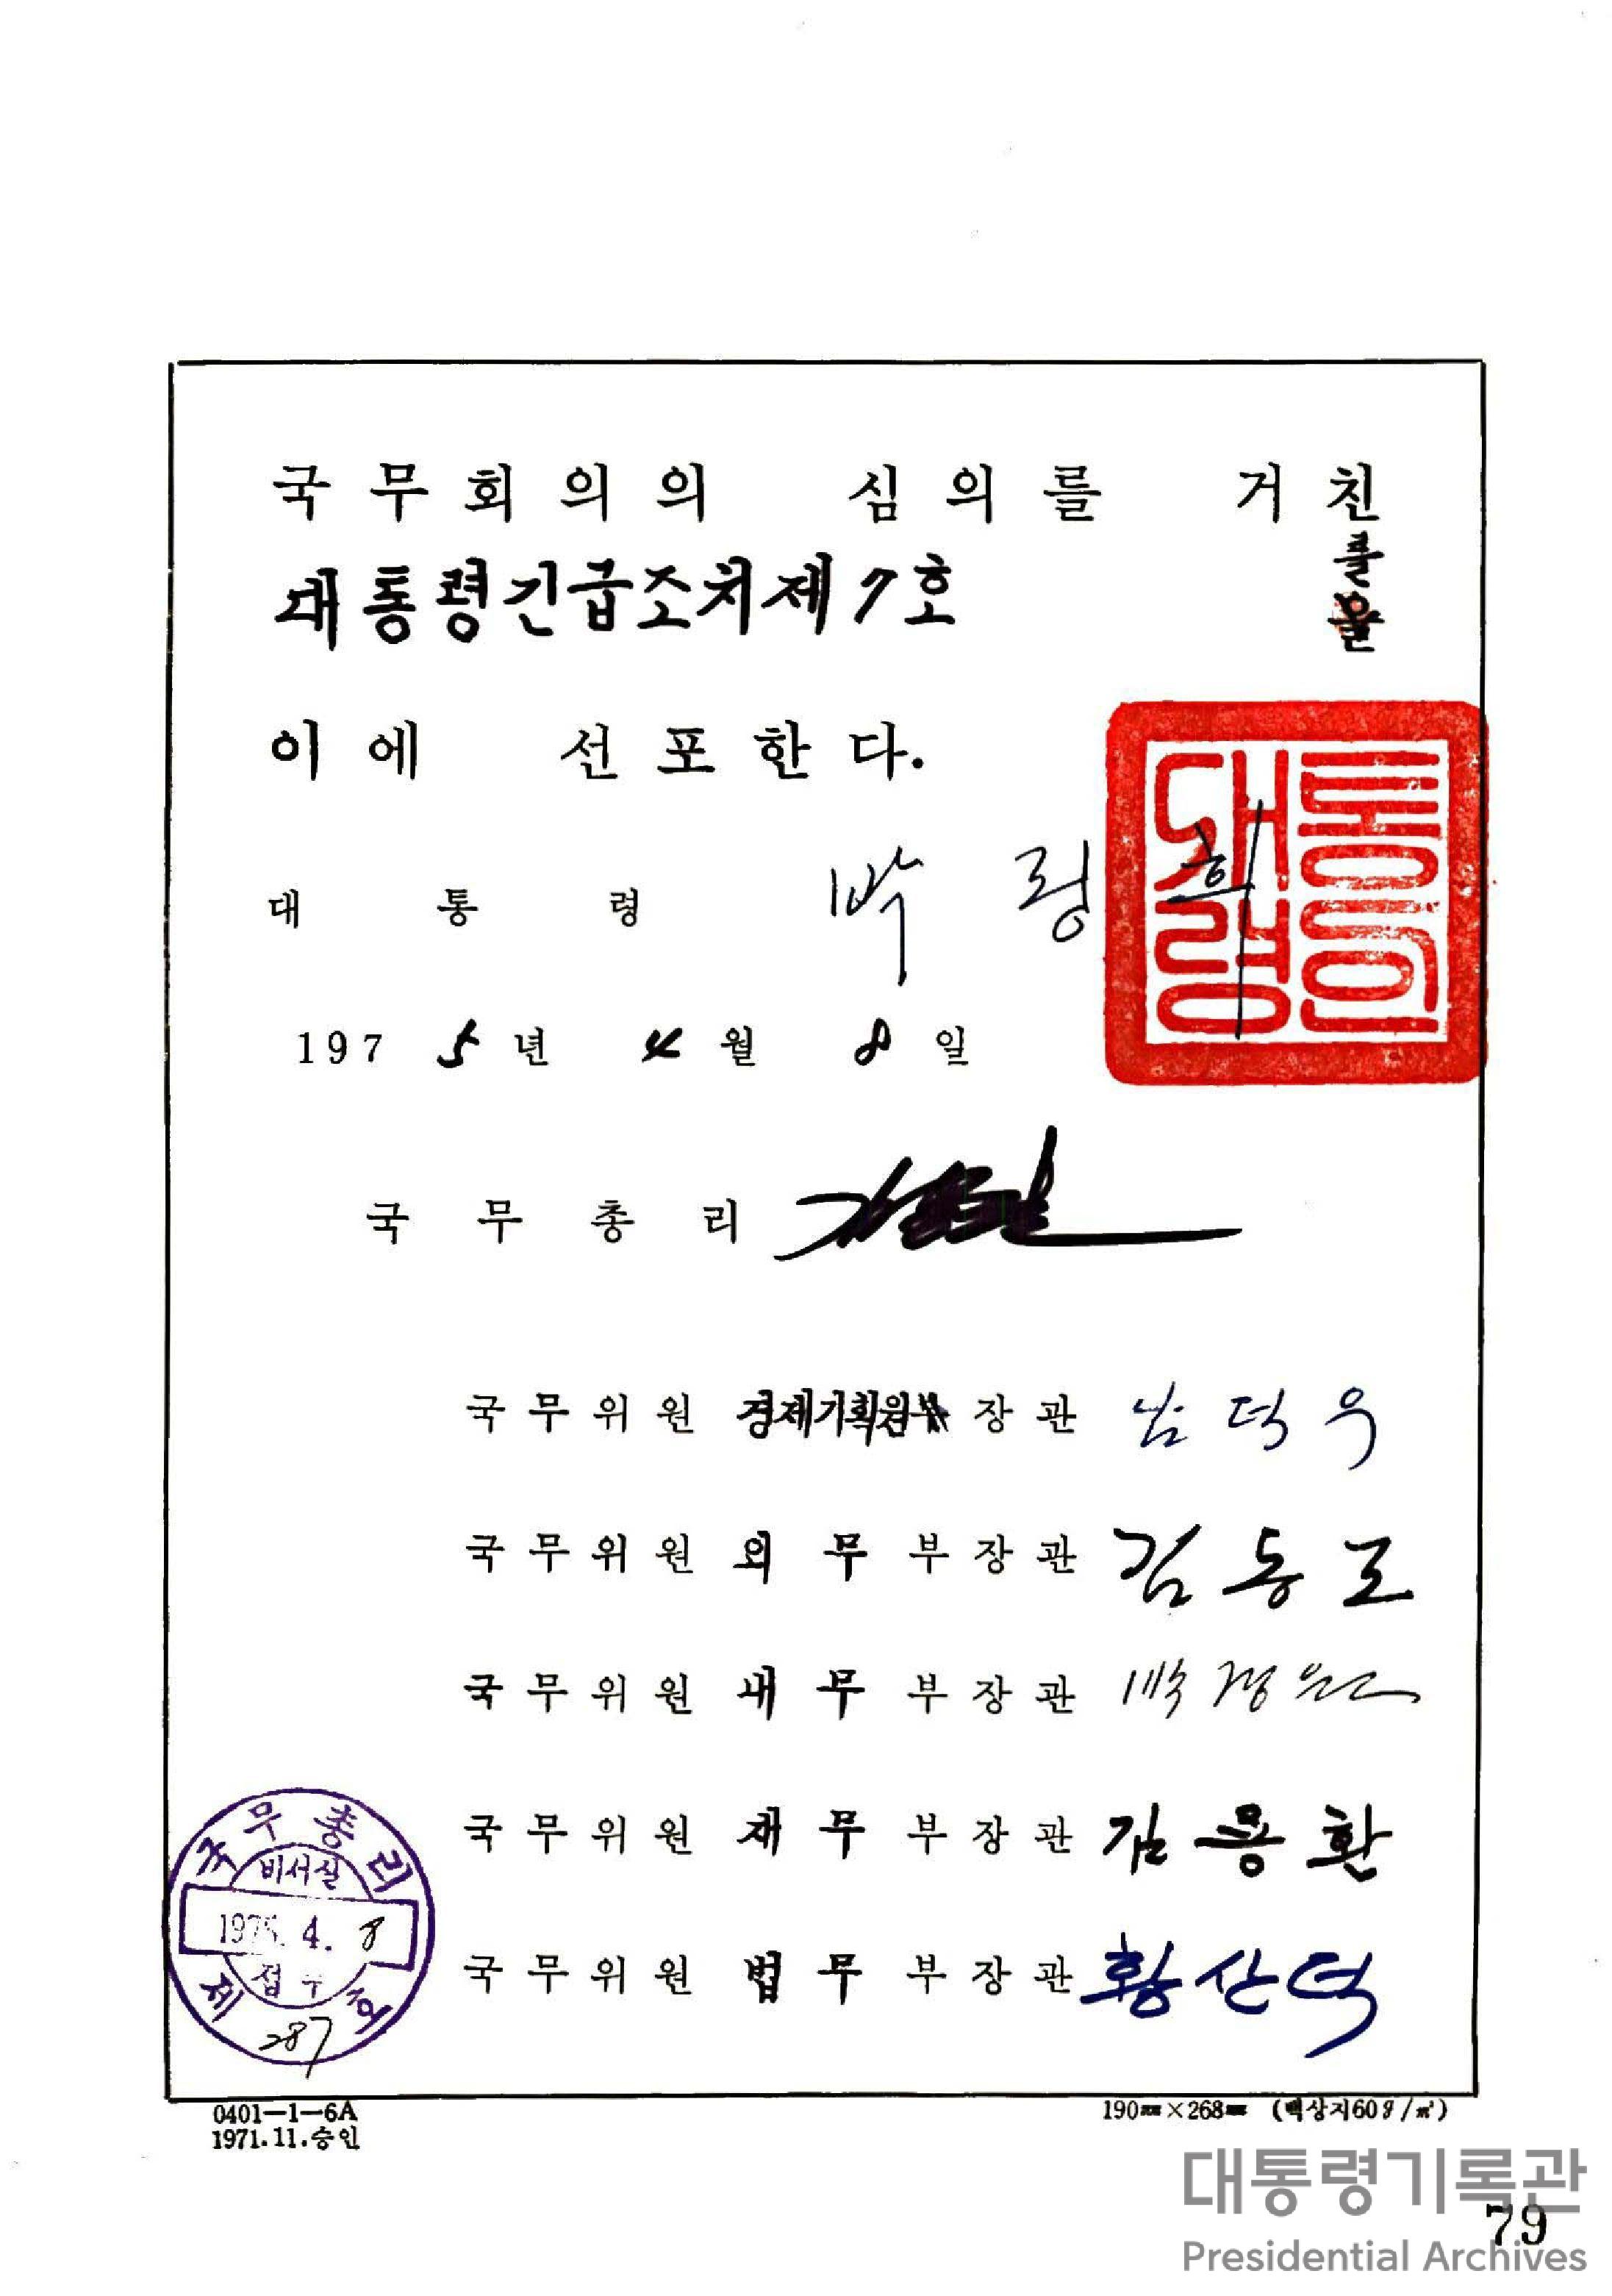 국무회의의 심의를 거친
대통령긴급조치제7호 를
이에 선포한다.
대통령 박정희
대통령인
1975년 4월 8일
국무총리
국무위원 경제기획원 장관 남덕우
국무위원 외무부장관 김동조
국무위원 내무부장관 박경원
국무위원 재무부장관 김용환
국무위원 법무부장관 황산덕
국무총리
비서실
1975. 4. 8
접수
제 287 호
0401-1-6A
1971.11.승인
190㎜×268㎜ (백상지60g/㎡)
대통령기록관
79
Presidential Archives